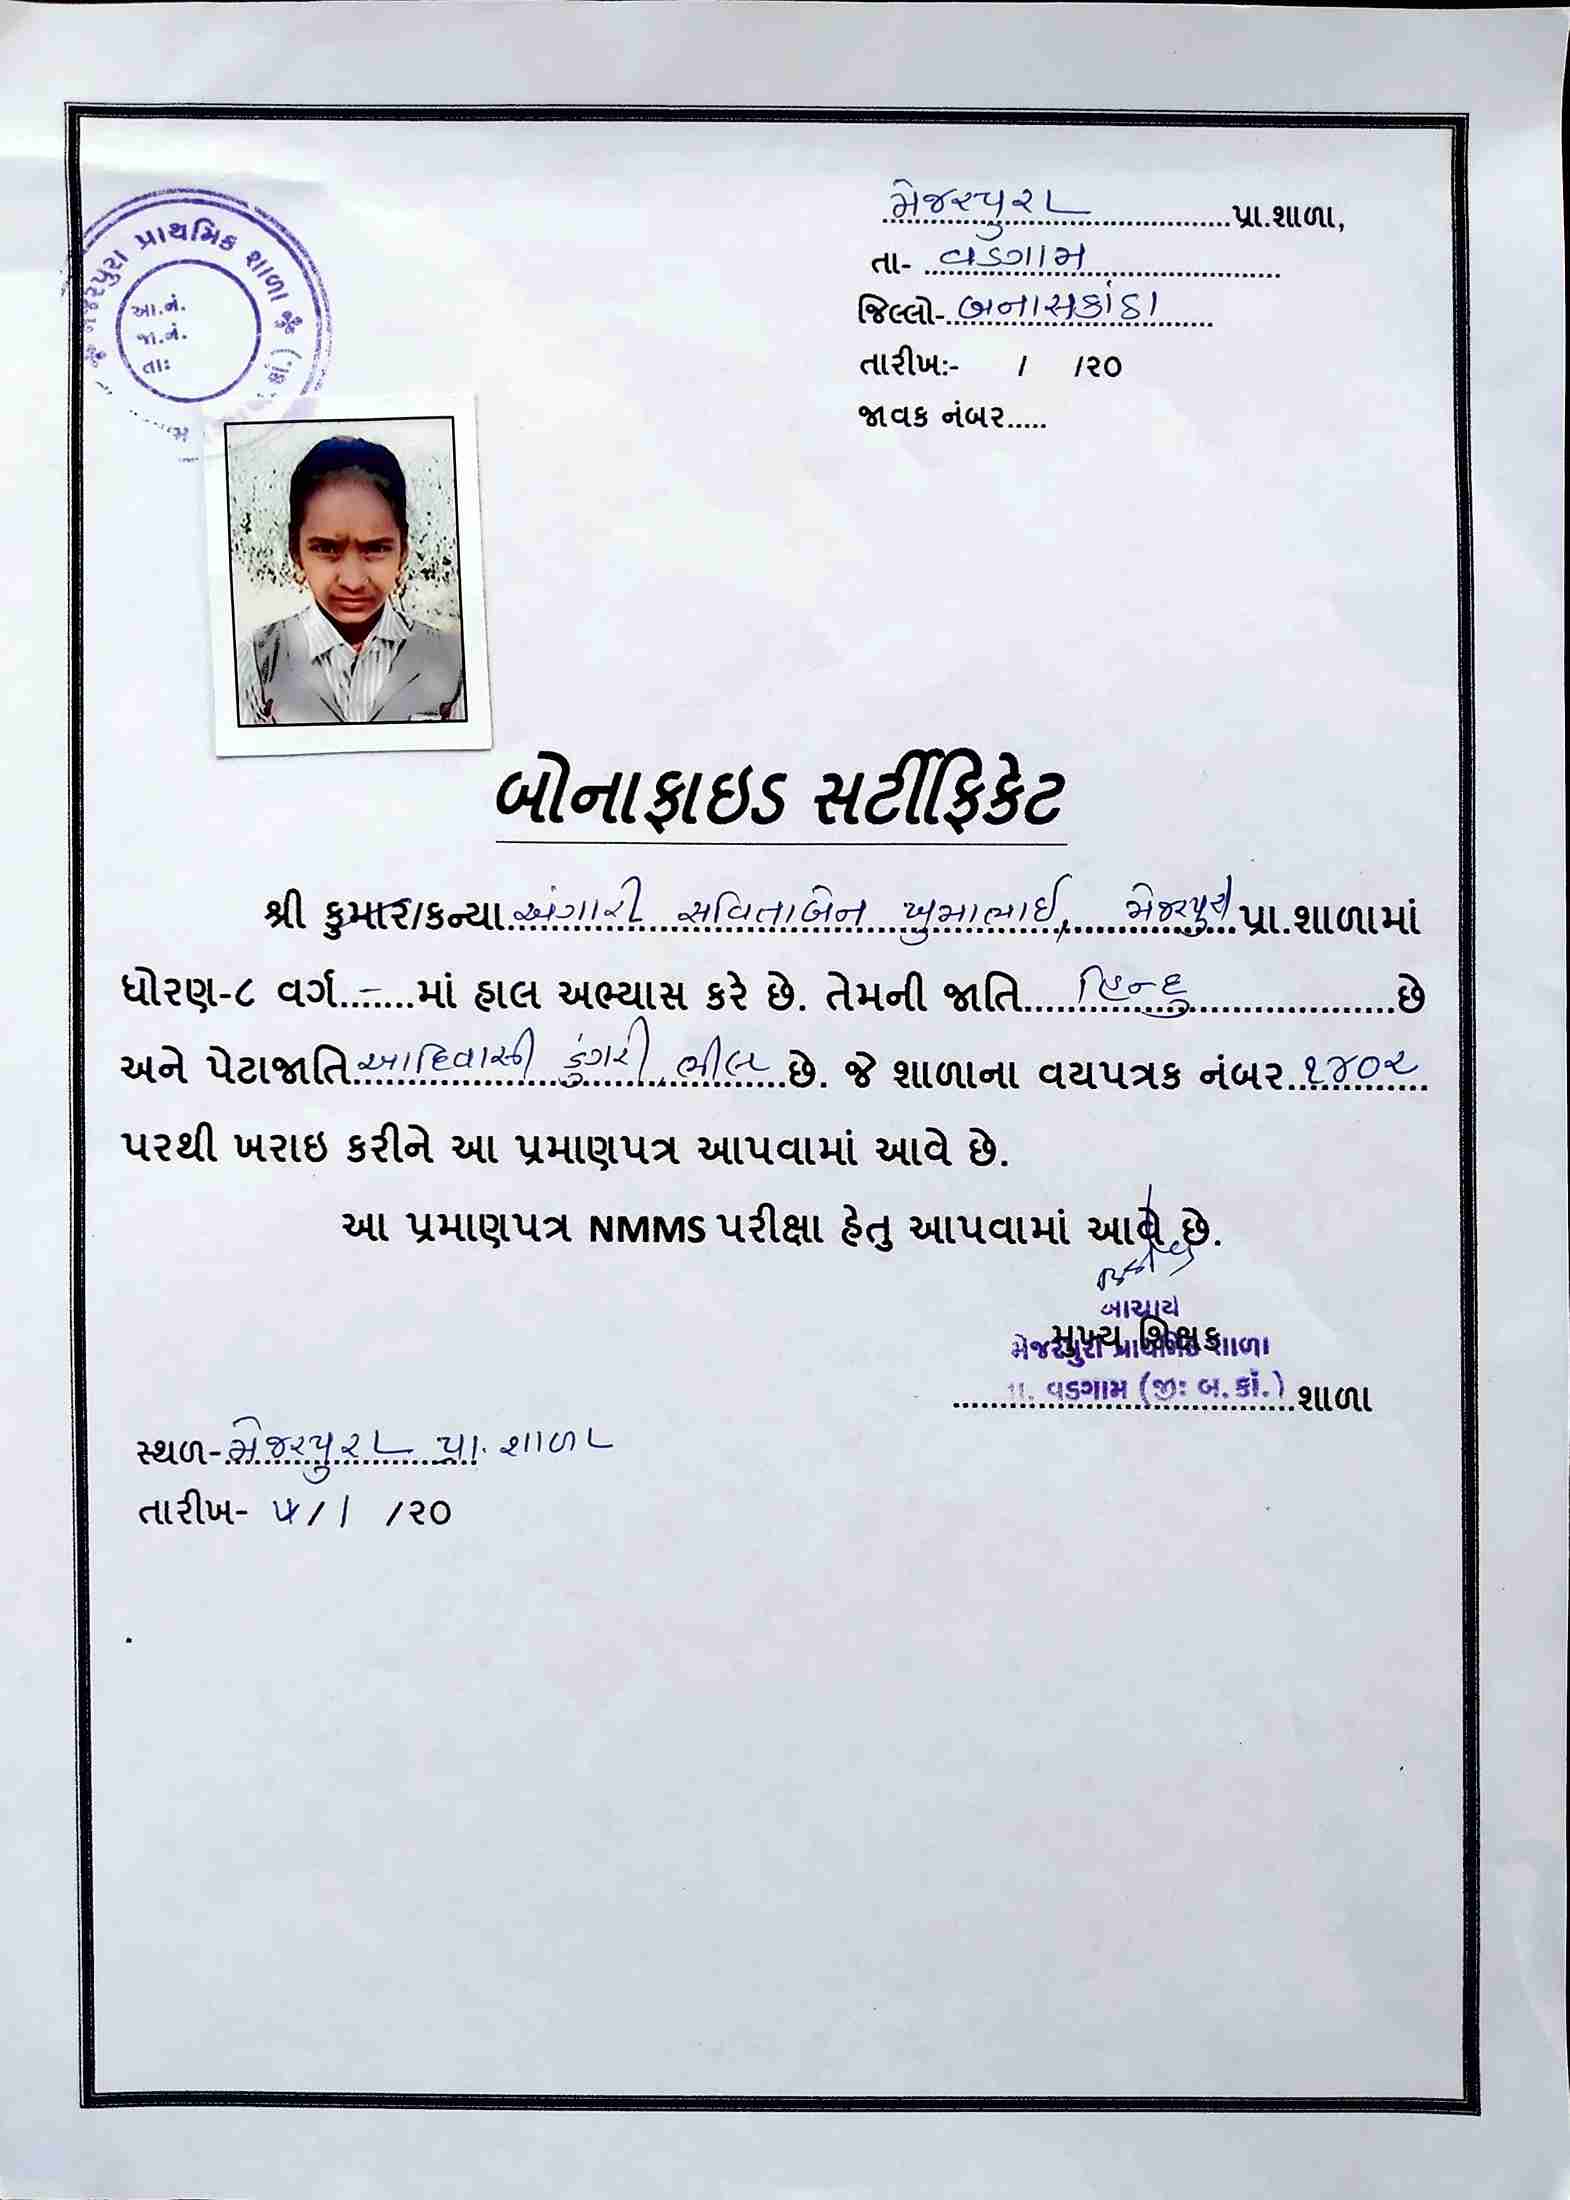 મેજરપુરા પ્રાથમિક શાળા
આ.નં.
જા.નં.
તા:
મેજરપુરા પ્રા.શાળા,
તા- વડગામ
જિલ્લો- બનાસકાંઠા
તારીખ:- / /૨૦
જાવક નંબર.....
બોનાફાઇડ સર્ટીફિકેટ
શ્રી કુમાર/કન્યા અંગારી સવિતાબેન ખુમાભાઈ, મેજરપુરા પ્રા.શાળામાં
ધોરણ-૮ વર્ગ...-....માં હાલ અભ્યાસ કરે છે. તેમની જાતિ હિન્દુ છે
અને પેટાજાતિ આદિવાસી ડુંગરી ભીલ છે. જે શાળાના વયપત્રક નંબર ૧૪૦૨
પરથી ખરાઇ કરીને આ પ્રમાણપત્ર આપવામાં આવે છે.
આ પ્રમાણપત્ર NMMS પરીક્ષા હેતુ આપવામાં આવે છે.
આચાર્ય
મુખ્ય શિક્ષક
મેજરપુરા પ્રાથમિક શાળા
વડગામ (જી: બ.કાં.) શાળા
સ્થળ- મેજરપુરા પ્રા. શાળા
તારીખ- ૫/1 /૨૦